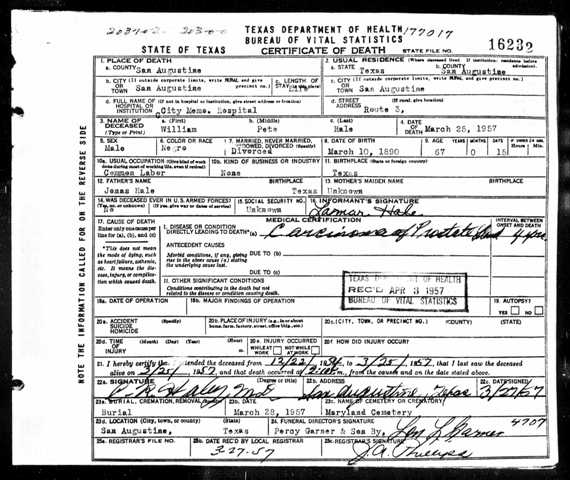 TEXAS DEPARTMENT OF HEALTH 177017
BUREAU OF VITAL STATISTICS
STATE OF TEXAS CERTIFICATE OF DEATH STATE FILE NO. 16232
1. PLACE OF DEATH 2. USUAL RESIDENCE (Where deceased lived. If institution: residence before admission).
a. COUNTY San Augustine a. STATE Texas b. COUNTY San Augustine
b. CITY (If outside corporate limits, write RURAL and give precinct no.) OR TOWN San Augustine c. LENGTH OF STAY Life c. CITY (If outside corporate limits, write RURAL and give precinct no.) OR TOWN San Augustine
d. FULL NAME OF (If not in hospital or institution, give street address or location) HOSPITAL OR INSTITUTION City Meme. Hospital d. STREET ADDRESS (If rural, give location) Route 3,
3. NAME OF DECEASED (Type or Print) a. (First) William b. (Middle) Pete c. (Last) Hale 4. DATE OF DEATH March 25, 1957
5. SEX Male 6. COLOR OR RACE Negro 7. MARRIED, NEVER MARRIED, WIDOWED, DIVORCED (Specify) Divorced 8. DATE OF BIRTH March 10, 1890 9. AGE 67 0 15
10a. USUAL OCCUPATION (Give kind of work done during most of working life, even if retired) Common Laber 10b. KIND OF BUSINESS OR INDUSTRY None 11. BIRTHPLACE (State or foreign country) Texas
12. FATHER'S NAME Jonas Hale Texas 13. MOTHER'S MAIDEN NAME Unknown
14. WAS DECEASED EVER IN U.S. ARMED FORCES? (Yes, no, or unknown) (If yes, give war or dates of service) No 15. SOCIAL SECURITY NO. Unknown 16. INFORMANT'S SIGNATURE Lamar Hale
MEDICAL CERTIFICATION
17. CAUSE OF DEATH Enter only one cause per line for (a), (b), and (c) I. DISEASE OR CONDITION DIRECTLY LEADING TO DEATH (a) Carcinoma of Prostate Gland INTERVAL BETWEEN ONSET AND DEATH
*This does not mean the mode of dying, such as heart failure, asthenia, etc. It means the disease, injury, or complication which caused death.
ANTECEDENT CAUSES
Morbid conditions, if any, giving rise to the above cause (a) stating the underlying cause last.
DUE TO (b)
DUE TO (c)
II. OTHER SIGNIFICANT CONDITIONS
Conditions contributing to the death but not related to the disease or condition causing death.
TEXAS DEPARTMENT OF HEALTH
REC'D APR 3 1957
BUREAU OF VITAL STATISTICS
18a. DATE OF OPERATION 18b. MAJOR FINDINGS OF OPERATION 19. AUTOPSY? YES NO
20a. ACCIDENT SUICIDE HOMICIDE (Specify) 20b. PLACE OF INJURY (e.g., in or about home, farm, factory, street, office bldg., etc.) 20c. (CITY, TOWN, OR PRECINCT NO.) (COUNTY) (STATE)
20d. TIME OF INJURY (Month) (Day) (Year) (Hour) 20e. INJURY OCCURRED WHILE AT WORK NOT WHILE AT WORK 20f. HOW DID INJURY OCCUR?
21. I hereby certify that I attended the deceased from 12/22/ 1956, to 3/25/ 1957, that I last saw the deceased
alive on 3/25/ 1957, and that death occurred at m., from the causes and on the date stated above.
22a. SIGNATURE (Degree or title) Haley M.D. 22b. ADDRESS San Augustine, Texas 22c. DATE SIGNED 3/27/57
23a. BURIAL, CREMATION, REMOVAL (Specify) Burial 23b. DATE March 28, 1957 23c. NAME OF CEMETERY OR CREMATORY Maryland Cemetery
23d. LOCATION (City, town, or county) (State) San Augustine, Texas 24. FUNERAL DIRECTOR'S SIGNATURE Percy Garner & Son By, Garner 4707
25a. REGISTRAR'S FILE NO. 25b. DATE REC'D BY LOCAL REGISTRAR 3-27-57 25c. REGISTRAR'S SIGNATURE J.A. Phillips
NOTE THE INFORMATION CALLED FOR ON THE REVERSE SIDE